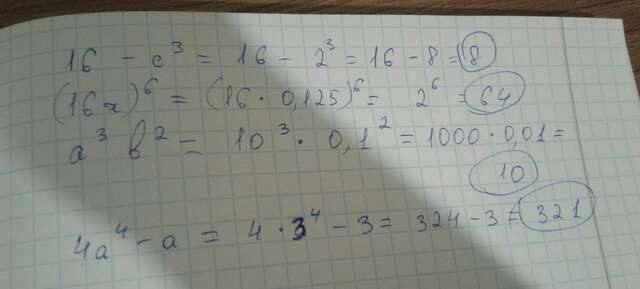 16 - c³ = 16 - 2³ = 16 - 8 = 8
(16x)⁶ = (16 · 0,125)⁶ = 2⁶ = 64
a³ b² = 10³ · 0,1² = 1000 · 0,01 =
10
4a⁴ - a = 4 · 3⁴ - 3 = 324 - 3 = 321